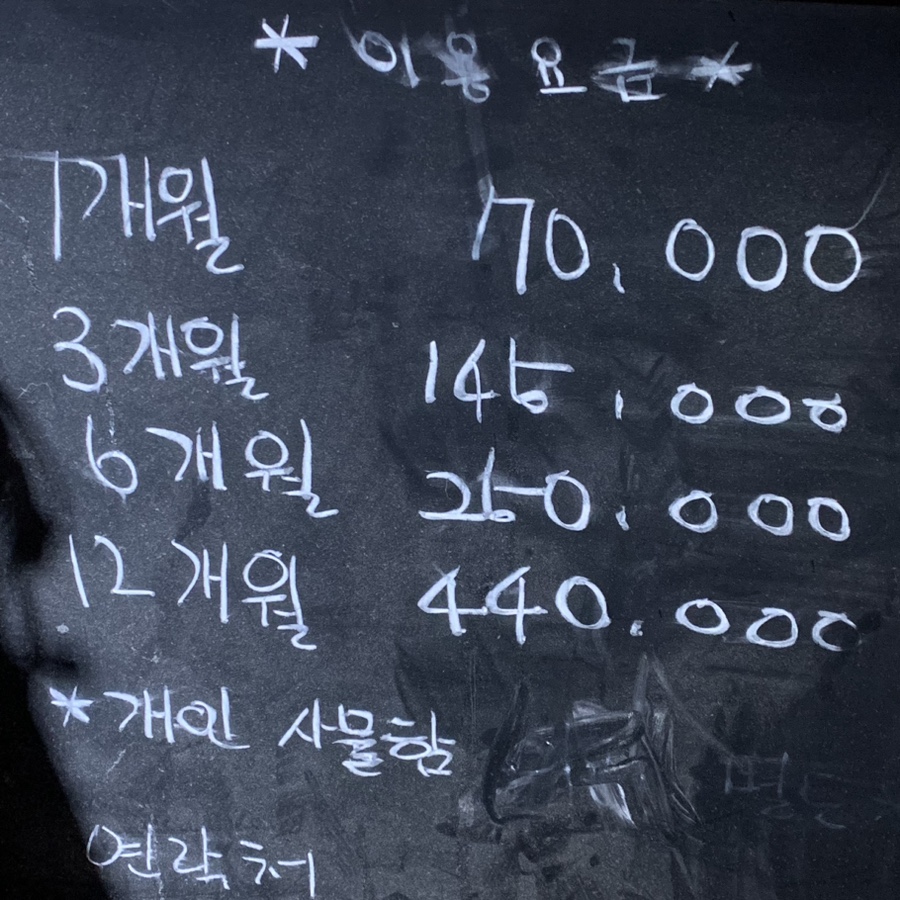 * 이용 요금 *
1개월 70,000
3개월 145,000
6개월 250,000
12개월 440,000
* 개인 사물함 별도
연락처